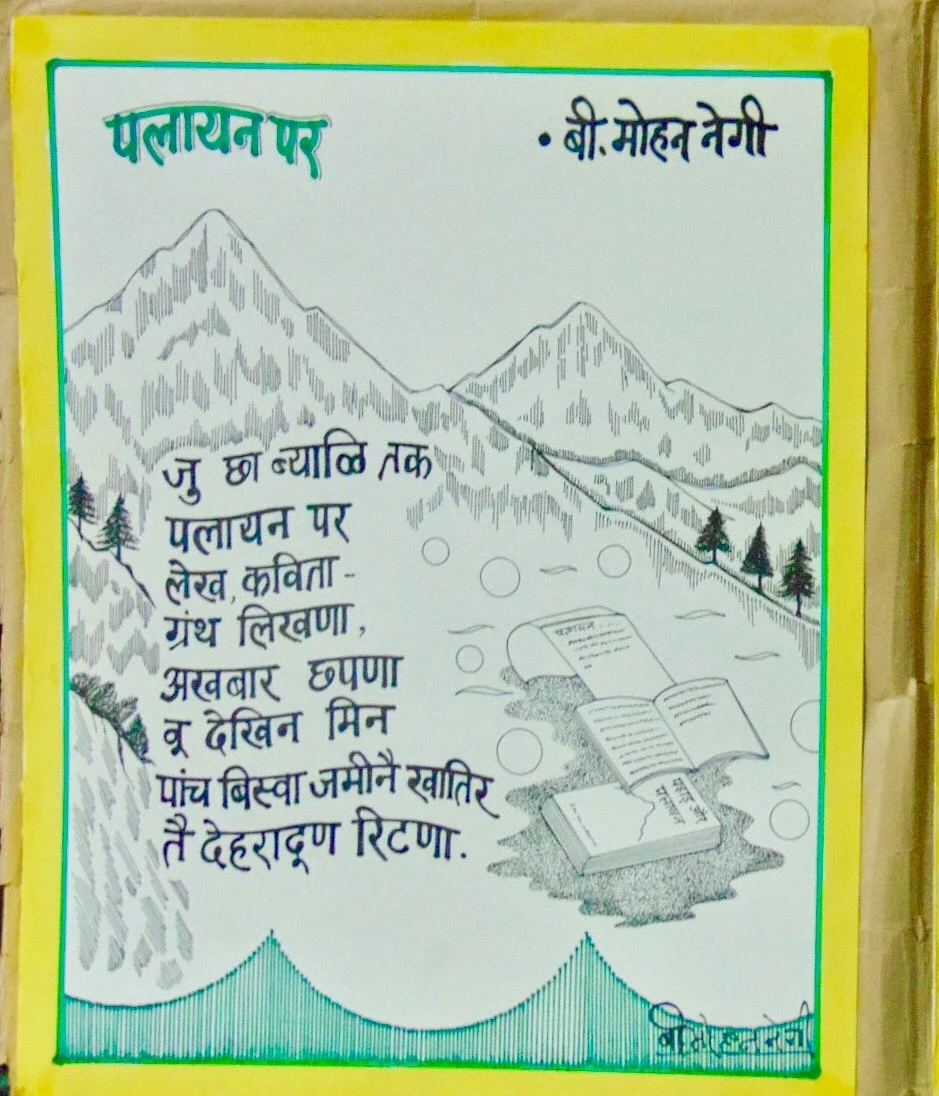 पलायन पर
• बी. मोहन नेगी
जु छा ब्यालि तक
पलायन पर
लेख, कविता -
ग्रंथ लिखणा,
अखबार छपणा
वू देखिन मिन
पांच बिस्वा जमीनै खातिर
तै देहरादूण रिटणा.
पलायन
पहाड़ और
पलायन
बी मोहन नेगी